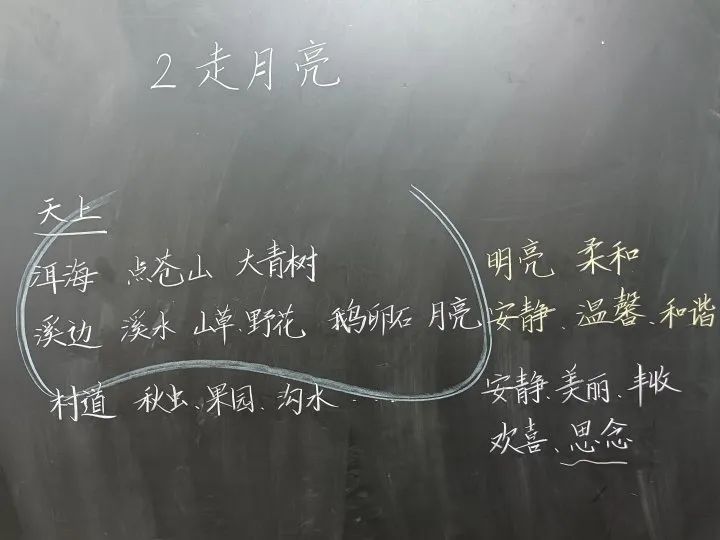 2 走月亮
天上
洱海 点苍山 大青树 明亮 柔和
溪边 溪水 山草、野花 鹅卵石 月亮 安静、温馨、和谐
村道 秋虫、果园、沟水 …… 安静、美丽、丰收
欢喜、思念